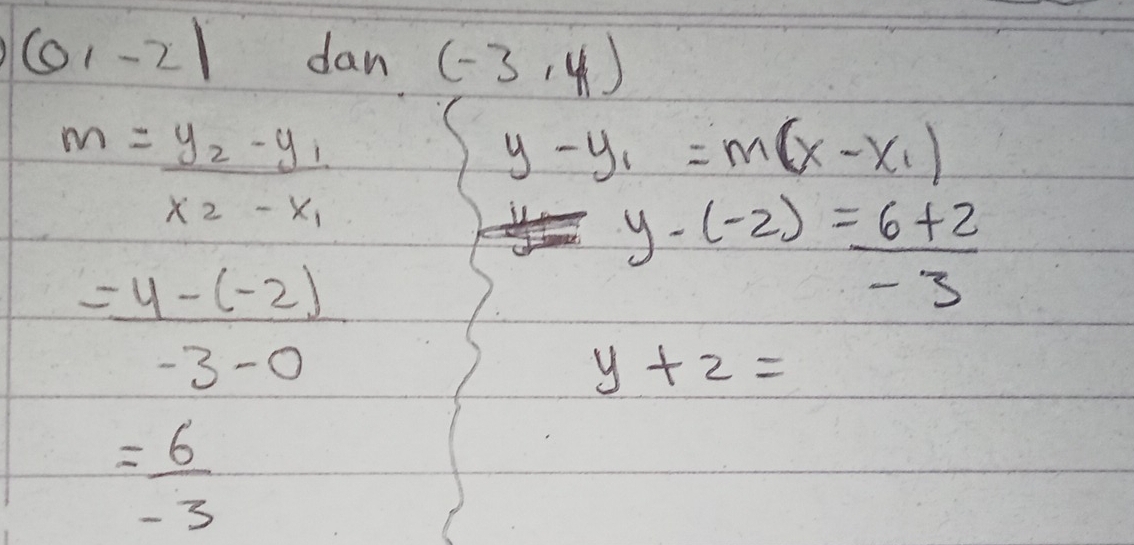 (0, -2) dan (-3, 4)
m = y₂ - y₁
x₂ - x₁
= 4 - (-2)
-3 - 0
= 6
-3
y - y₁ = m(x - x₁)
y - (-2) = 6 + 2
-3
y + 2 =